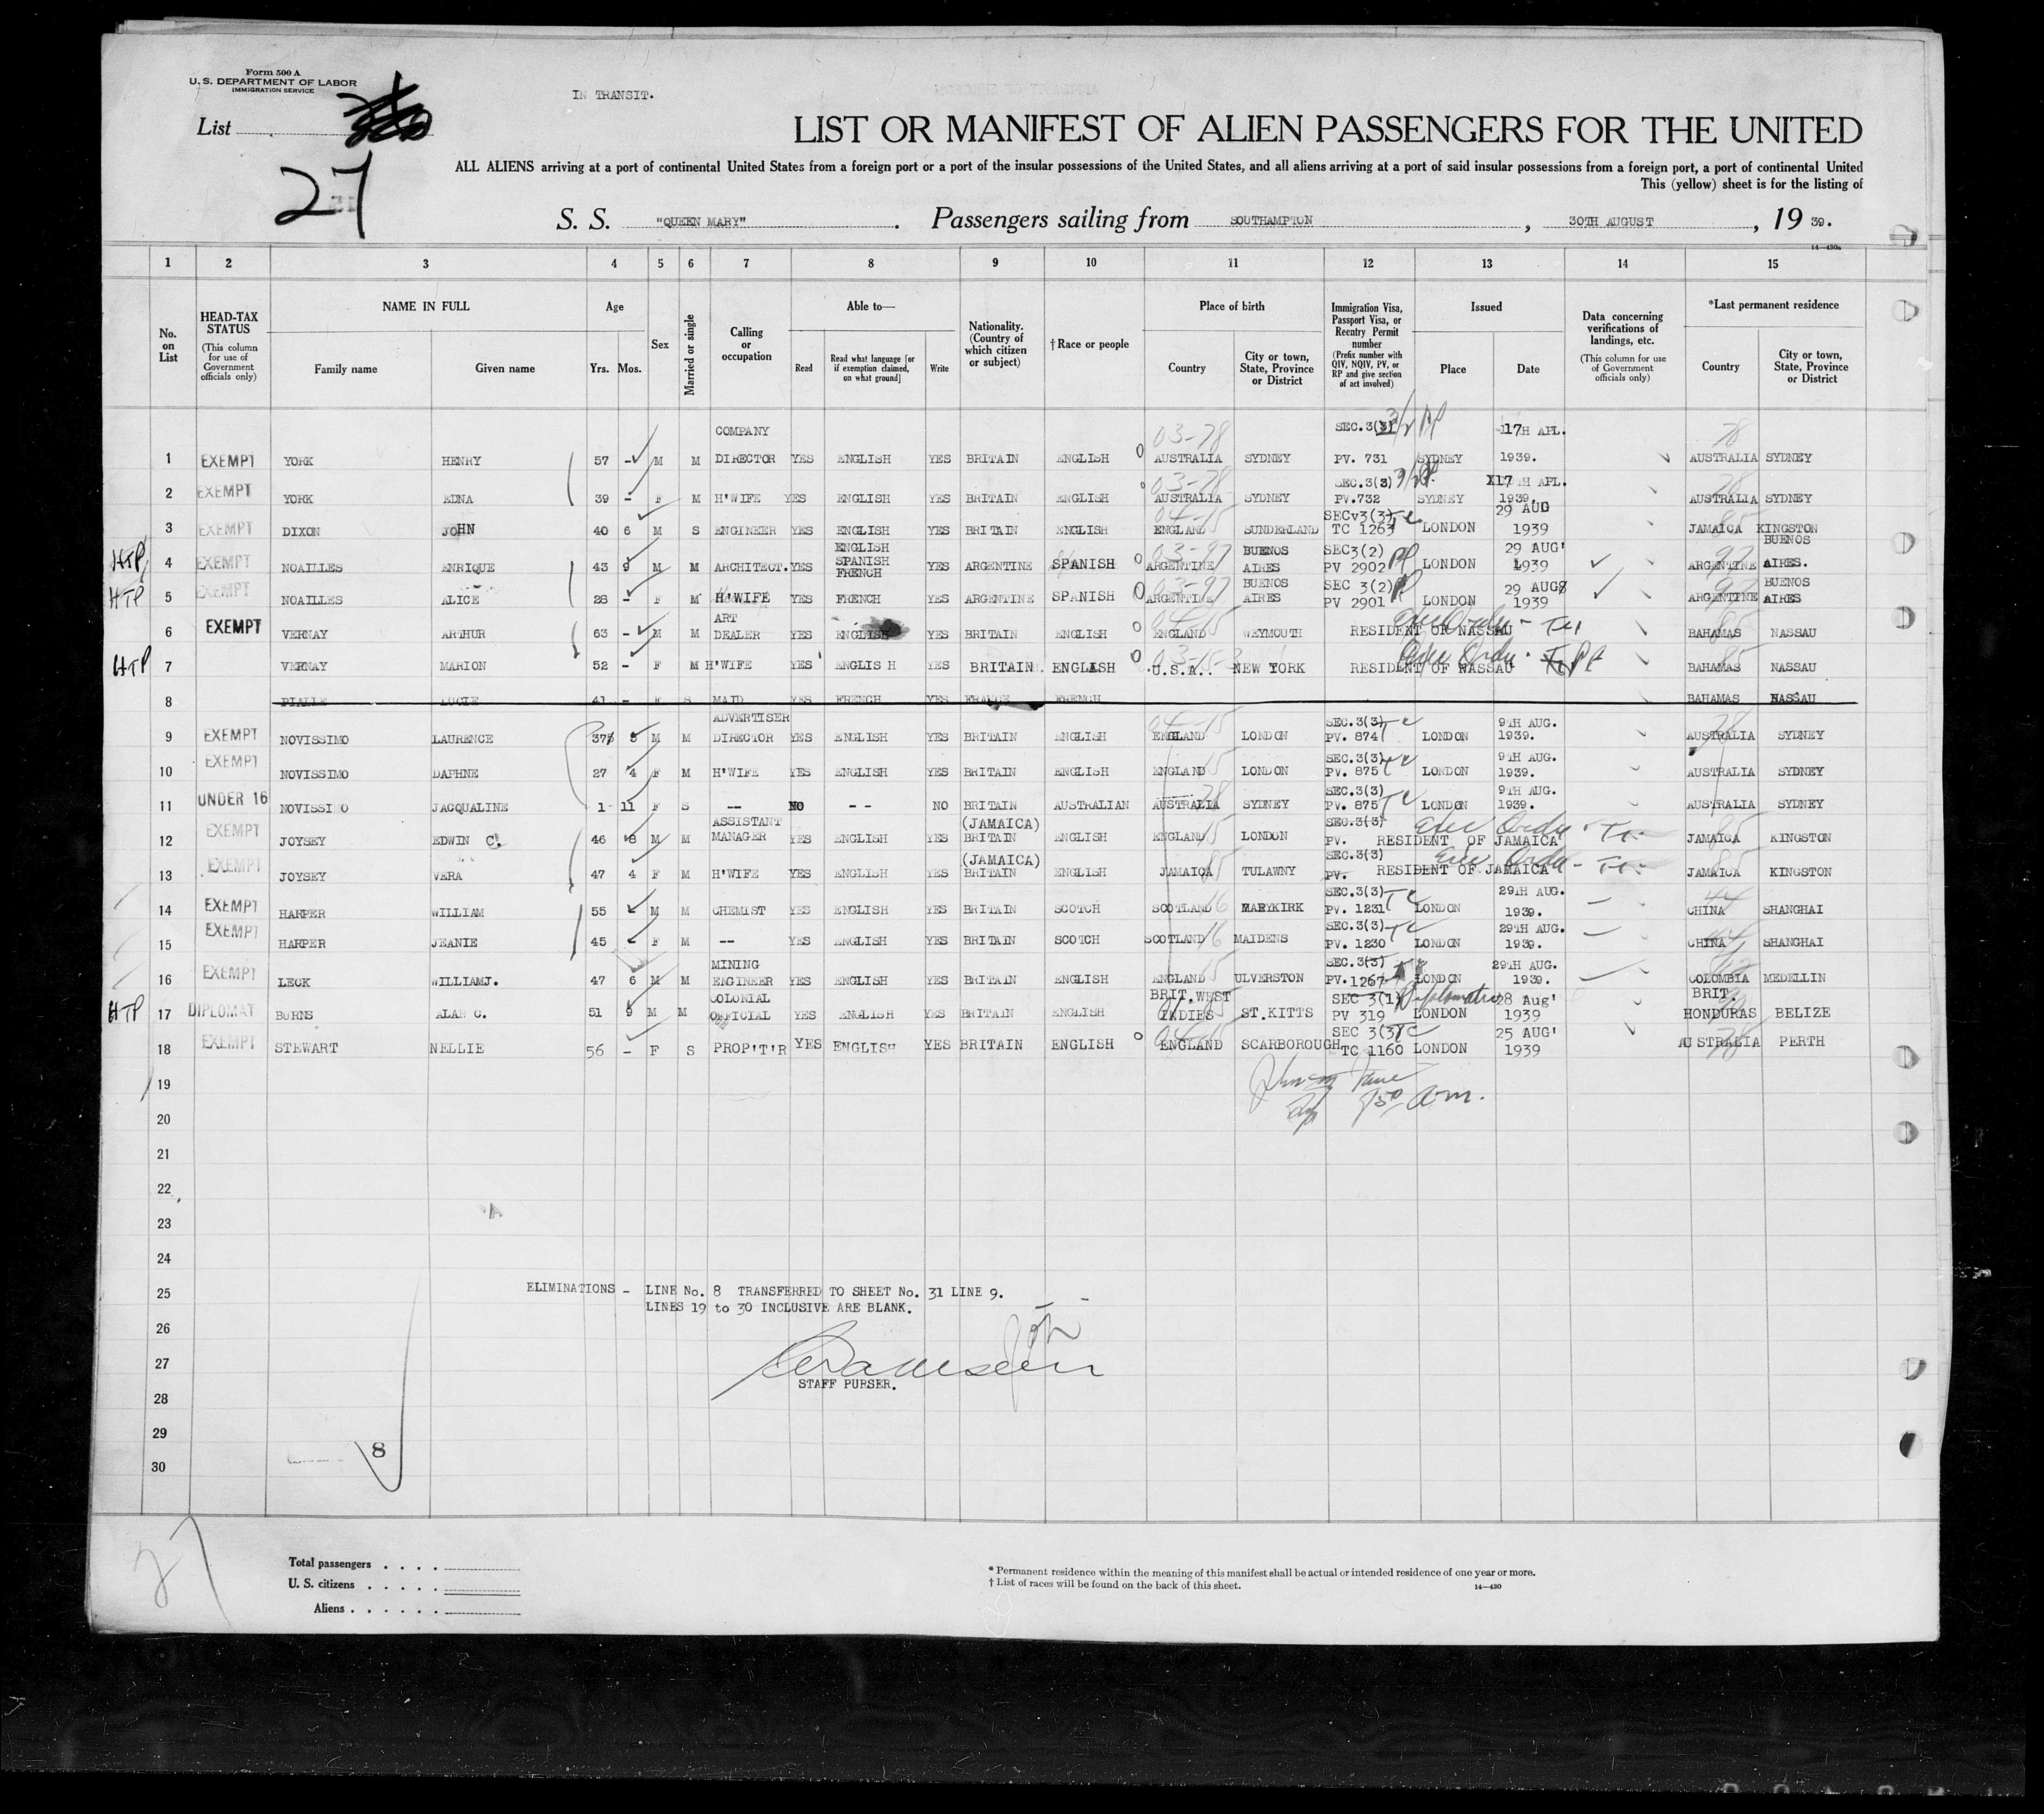 Form 500 A
U. S. DEPARTMENT OF LABOR
IMMIGRATION SERVICE
IN TRANSIT.
List
27
LIST OR MANIFEST OF ALIEN PASSENGERS FOR THE UNITED
ALL ALIENS arriving at a port of continental United States from a foreign port or a port of the insular possessions of the United States, and all aliens arriving at a port of said insular possessions from a foreign port, a port of continental United
This (yellow) sheet is for the listing of
S. S. "QUEEN MARY". Passengers sailing from SOUTHAMPTON, 30TH AUGUST, 19 39.
14—430a
1 2 3 4 5 6 7 8 9 10 11 12 13 14 15
No. on List
HEAD-TAX STATUS (This column for use of Government officials only)
NAME IN FULL Family name Given name
Age Yrs. Mos.
Sex
Married or single
Calling or occupation
Able to— Read Read what language [or if exemption claimed, on what ground] Write
Nationality. (Country of which citizen or subject)
†Race or people
Place of birth Country City or town, State, Province or District
Immigration Visa, Passport Visa, or Reentry Permit number (Prefix number with QIV, NQIV, PV, or RP and give section of act involved)
Issued Place Date
Data concerning verifications of landings, etc. (This column for use of Government officials only)
*Last permanent residence Country City or town, State, Province or District
1 EXEMPT YORK HENRY 57 - M M COMPANY DIRECTOR YES ENGLISH YES BRITAIN ENGLISH 03-78 AUSTRALIA SYDNEY SEC.3(3) PV. 731 SYDNEY 17H APL. 1939. 78 AUSTRALIA SYDNEY
2 EXEMPT YORK EDNA 39 - F M H'WIFE YES ENGLISH YES BRITAIN ENGLISH 03-78 AUSTRALIA SYDNEY SEC.3(3) PV.732 SYDNEY X17TH APL. 1939. 78 AUSTRALIA SYDNEY
3 EXEMPT DIXON JOHN 40 6 M S ENGINEER YES ENGLISH YES BRITAIN ENGLISH 04-15 ENGLAND SUNDERLAND SECv3(3) TC 1263 LONDON 29 AUG 1939 85 JAMAICA KINGSTON
HTP 4 EXEMPT NOAILLES ENRIQUE 43 9 M M ARCHITECT. YES ENGLISH SPANISH FRENCH YES ARGENTINE SPANISH 03-97 ARGENTINE BUENOS AIRES SEC3(2) PP PV 2902 LONDON 29 AUG' 1939 97 ARGENTINE BUENOS AIRES.
HTP 5 EXEMPT NOAILLES ALICE 28 - F M H'WIFE YES FRENCH YES ARGENTINE SPANISH 03-97 ARGENTINE BUENOS AIRES SEC 3(2) PP PV 2901 LONDON 29 AUG 1939 97 ARGENTINE BUENOS AIRES
6 EXEMPT VERNAY ARTHUR 63 - M M ART DEALER YES ENGLISH YES BRITAIN ENGLISH 04-15 ENGLAND WEYMOUTH RESIDENT OF NASSAU 85 BAHAMAS NASSAU
HTP 7 VERNAY MARION 52 - F M H'WIFE YES ENGLISH YES BRITAIN ENGLISH 03-15-3 U.S.A. NEW YORK RESIDENT OF NASSAU 85 BAHAMAS NASSAU
8 PIALLE LUCIE 41 - F S MAID YES FRENCH YES FRANCE FRENCH BAHAMAS NASSAU
9 EXEMPT NOVISSIMO LAURENCE 37 M M ADVERTISER DIRECTOR YES ENGLISH YES BRITAIN ENGLISH 04-15 ENGLAND LONDON SEC.3(3) PV. 874 LONDON 9TH AUG. 1939. 78 AUSTRALIA SYDNEY
10 EXEMPT NOVISSIMO DAPHNE 27 4 F M H'WIFE YES ENGLISH YES BRITAIN ENGLISH 15 ENGLAND LONDON SEC.3(3) PV. 875 LONDON 9TH AUG. 1939. AUSTRALIA SYDNEY
11 UNDER 16 NOVISSIMO JACQUALINE 1 11 F S -- NO -- NO BRITAIN AUSTRALIAN 78 AUSTRALIA SYDNEY SEC.3(3) PV. 875 LONDON 9TH AUG. 1939. AUSTRALIA SYDNEY
12 EXEMPT JOYSEY EDWIN C. 46 8 M M ASSISTANT MANAGER YES ENGLISH YES (JAMAICA) BRITAIN ENGLISH 15 ENGLAND LONDON SEC.3(3) PV. RESIDENT OF JAMAICA 85 JAMAICA KINGSTON
13 EXEMPT JOYSEY VERA 47 4 F M H'WIFE YES ENGLISH YES (JAMAICA) BRITAIN ENGLISH 85 JAMAICA TULAWNY SEC.3(3) PV. RESIDENT OF JAMAICA 85 JAMAICA KINGSTON
14 EXEMPT HARPER WILLIAM 55 - M M CHEMIST YES ENGLISH YES BRITAIN SCOTCH 16 SCOTLAND MARYKIRK SEC.3(3) PV. 1231 LONDON 29TH AUG. 1939. 44 CHINA SHANGHAI
15 EXEMPT HARPER JEANIE 45 - F M -- YES ENGLISH YES BRITAIN SCOTCH 16 SCOTLAND MAIDENS SEC.3(3) PV. 1230 LONDON 29TH AUG. 1939. 44 CHINA SHANGHAI
16 EXEMPT LECK WILLIAMJ. 47 6 M M MINING ENGINEER YES ENGLISH YES BRITAIN ENGLISH 15 ENGLAND ULVERSTON SEC.3(3) PV.1267 LONDON 29TH AUG. 1939. COLOMBIA MEDELLIN
HTP 17 DIPLOMAT BURNS ALAN C. 51 9 M M COLONIAL OFFICIAL YES ENGLISH YES BRITAIN ENGLISH BRIT.WEST INDIES ST.KITTS SEC 3(1) Diplomatic PV 319 LONDON 28 Aug' 1939 BRIT. HONDURAS BELIZE
18 EXEMPT STEWART NELLIE 56 - F S PROP'T'R YES ENGLISH YES BRITAIN ENGLISH 04-15 ENGLAND SCARBOROUGH SEC 3(3) TC 1160 LONDON 25 AUG' 1939 78 AUSTRALIA PERTH
19
20
21
22
23
24
25 ELIMINATIONS - LINE No. 8 TRANSFERRED TO SHEET No. 31 LINE 9.
LINES 19 to 30 INCLUSIVE ARE BLANK.
26
27
STAFF PURSER.
28
29
8
30
27
Total passengers
U. S. citizens
Aliens
* Permanent residence within the meaning of this manifest shall be actual or intended residence of one year or more.
† List of races will be found on the back of this sheet.
14—430